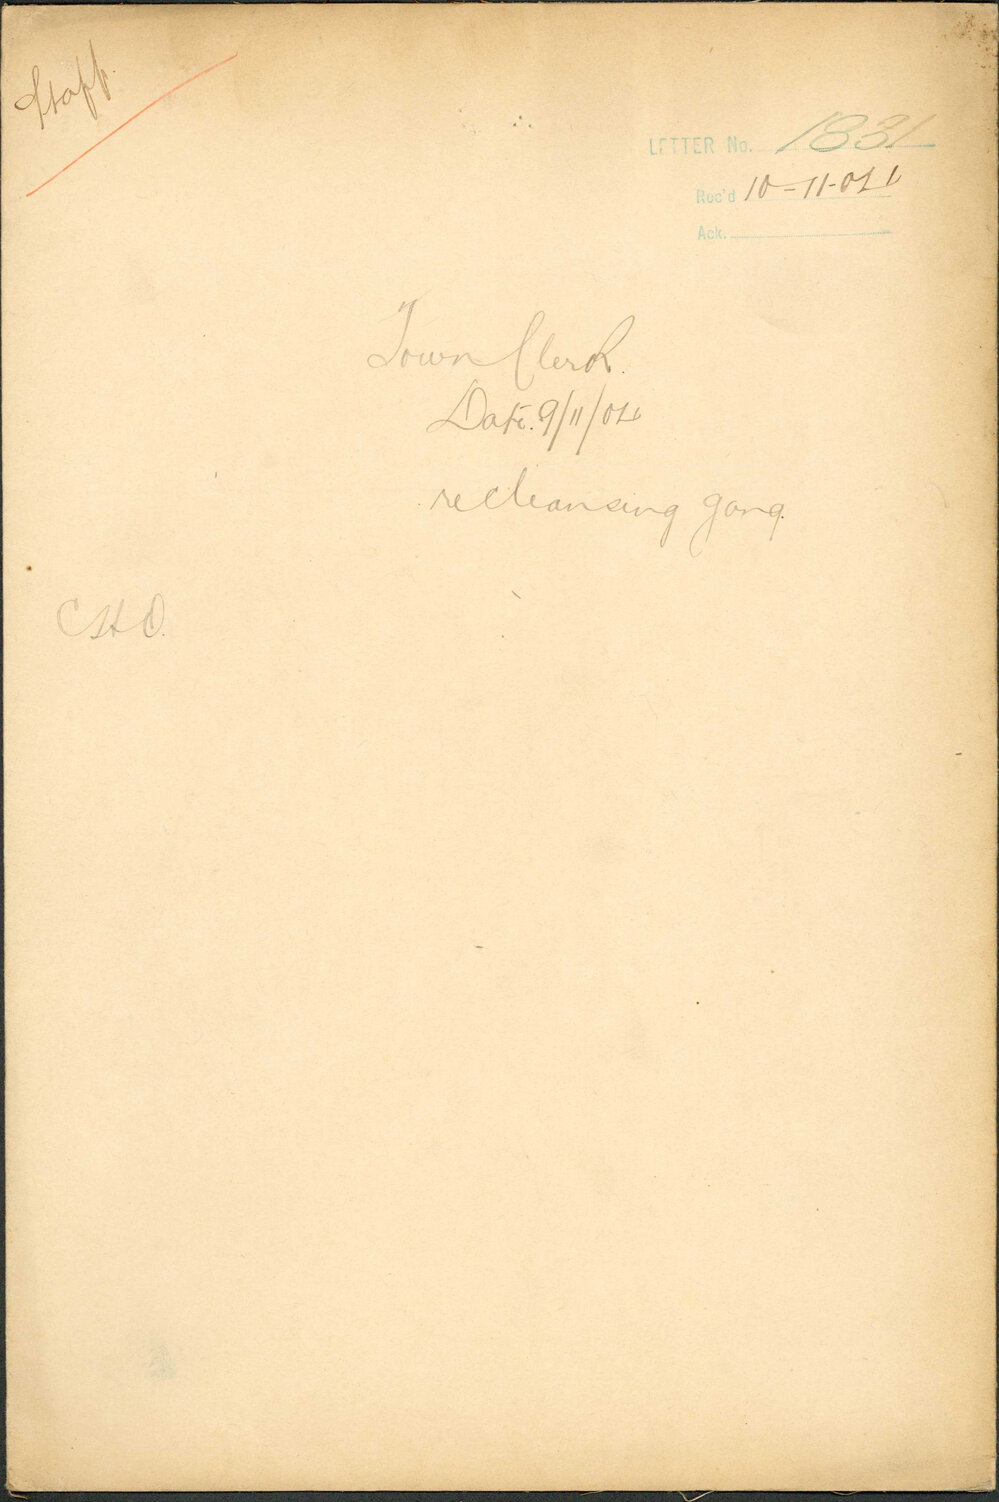 Staff.
LETTER No. 1831
Rec'd 10-11-04
Ack.
Town Clerk.
Date. 9/11/04
re Cleansing gang.
CHO.